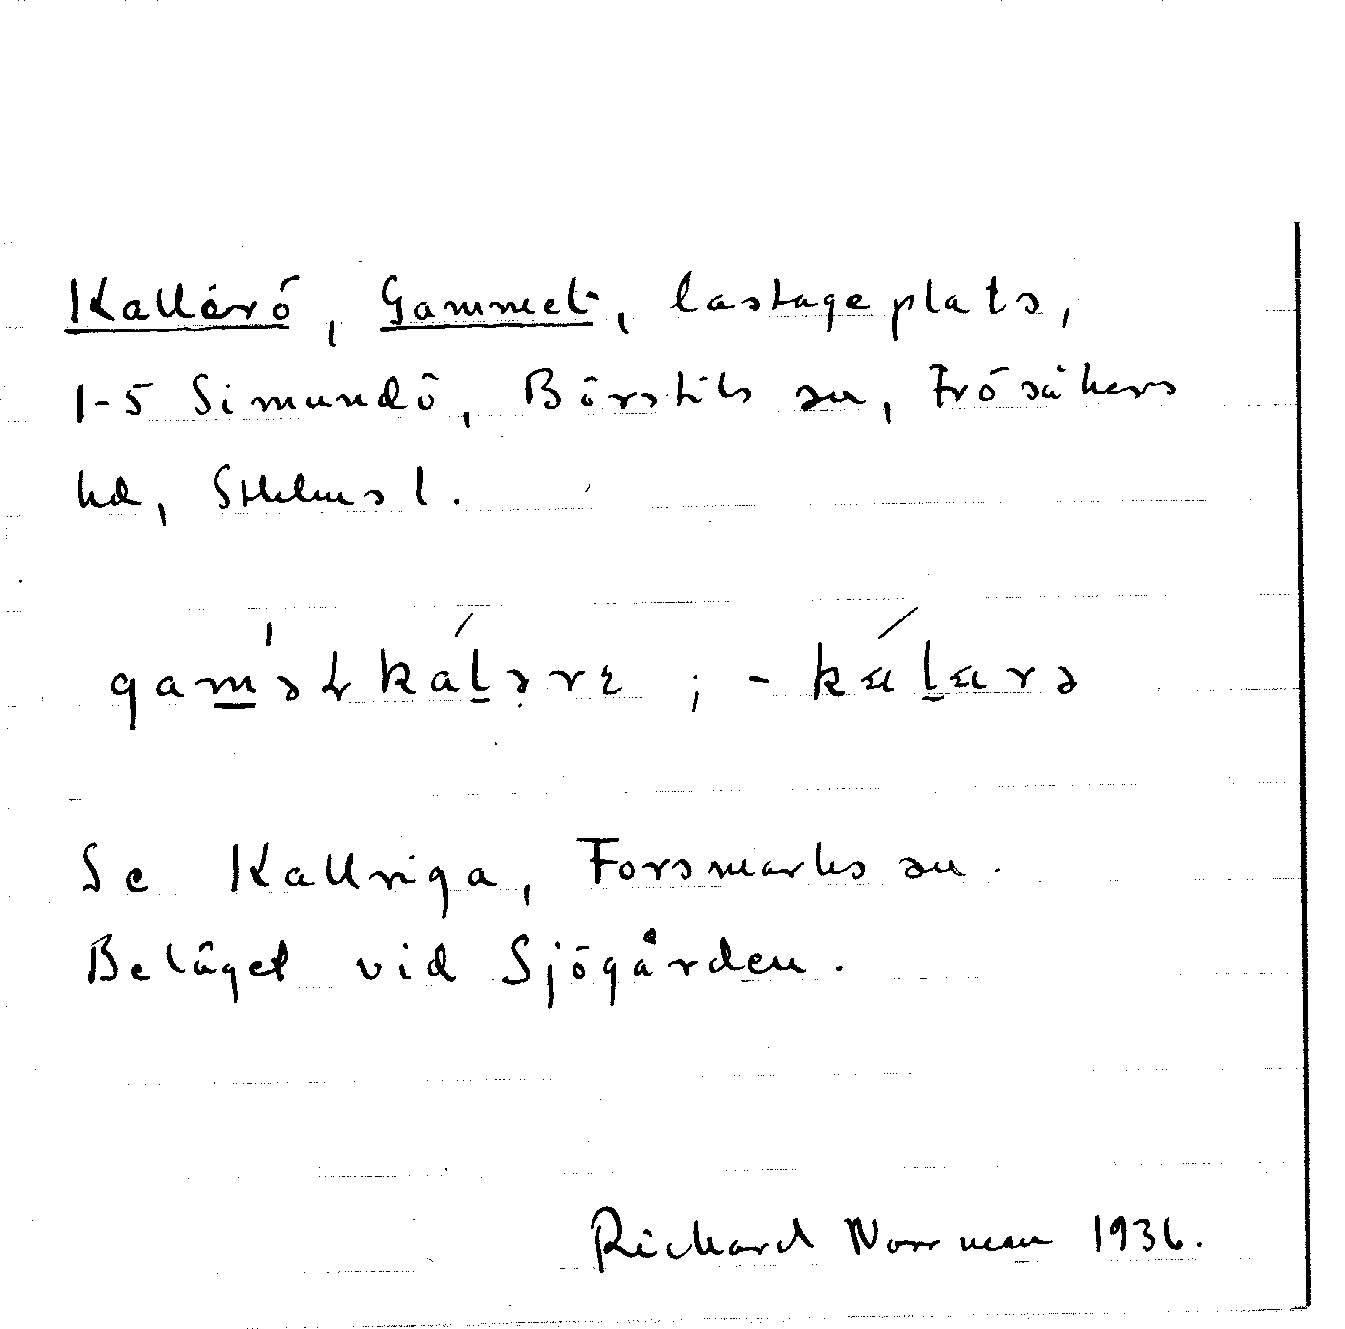 Kallärö, Gammel-, lastageplats,
1-5 Simundö, Börstils sn, Frösåkers
hd, Sthlms l.
gam̲'əł káḻərɛ ; - káḻarə
Se Kallriga, Forsmarks sn.
Beläget vid Sjögården.
Richard Norrman 1936.